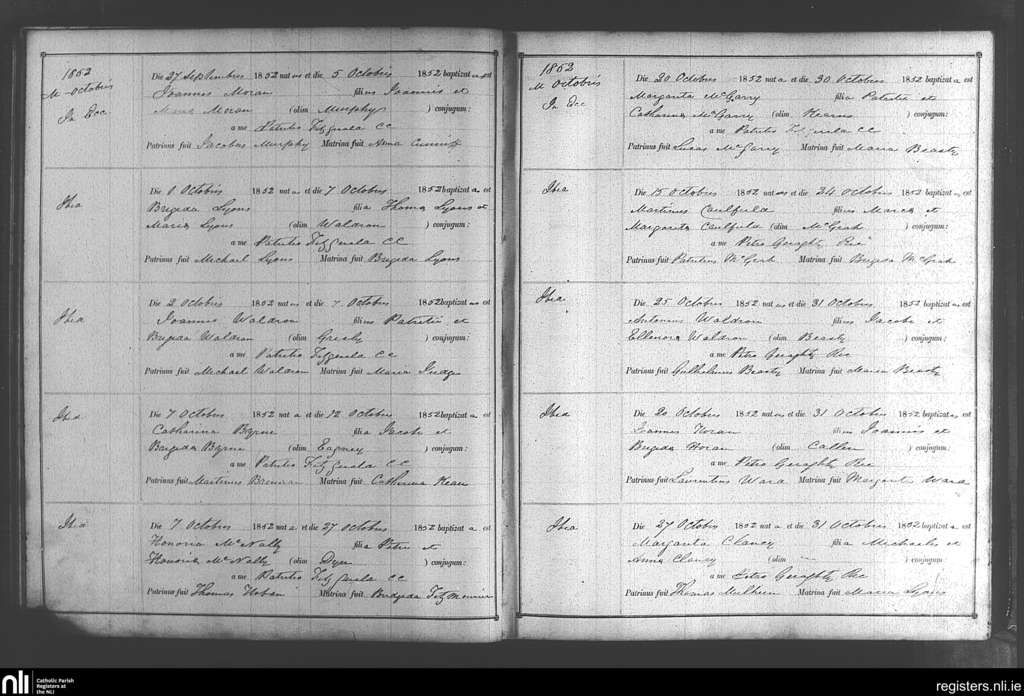 1852
M Octobris
In Ecc
Die 27 Septembris 1852 nat us et die 5 Octobris 1852 baptizat us est
Joannes Moran filius Joannis et
Moran (olim Murphy ) conjugum:
a me Patritio Fitzgerald CC
Patrinus fuit Jacobus Murphy Matrina fuit Anna
Ibid
Die 1 Octobris 1852 nat a et die 7 Octobris 1852 baptizat a est
Brigida Lyons filia Thoma Lyons et
Maria Lyons (olim Waldron ) conjugum:
a me Patritio Fitzgerald CC
Patrinus fuit Michael Lyons Matrina fuit Brigida Lyons
Ibid
Die 2 Octobris 1852 nat us et die 7 Octobris 1852 baptizat us est
Joannes Waldron filius Patritii et
Brigida Waldron (olim ) conjugum:
a me Patritio Fitzgerald CC
Patrinus fuit Michael Waldron Matrina fuit Maria Judge
Ibid
Die 7 Octobris 1852 nat a et die 12 Octobris 1852 baptizat a est
Catharina Byrne filia Jacobi et
Brigida Byrne (olim ) conjugum:
a me Patritio Fitzgerald CC
Patrinus fuit Martinus Brennan Matrina fuit Catharina Kean
Ibid
Die 7 Octobris 1852 nat a et die 27 Octobris 1852 baptizat a est
Honoria McNally filia Petri et
Honoria McNally (olim Dyer ) conjugum:
a me Patritio Fitzgerald CC
Patrinus fuit Thomas Hoban Matrina fuit Bridgida Fitzmaurice
1852
M Octobris
In Ecc
Die 20 Octobris 1852 nat a et die 30 Octobris 1852 baptizat a est
Margarita McGarry filia Patritii et
Catharina McGarry (olim Kearns ) conjugum:
a me Patritio Fitzgerald CC
Patrinus fuit Lucas McGarry Matrina fuit Maria Beasty
Ibid
Die 15 Octobris 1852 nat us et die 24 Octobris 1852 baptizat us est
Martinus Caulfield filius Marci et
Margarita Caulfield (olim McGrath ) conjugum:
a me Petro Geraghty Rec
Patrinus fuit Patritius McGrath Matrina fuit Brigida McGrath
Ibid
Die 25 Octobris 1852 nat us et die 31 Octobris 1852 baptizat us est
Antonius Waldron filius Jacobi et
Ellenora Waldron (olim Beasty ) conjugum:
a me Petro Geraghty Rec
Patrinus fuit Gulhelmus Beasty Matrina fuit Maria Beasty
Ibid
Die 20 Octobris 1852 nat us et die 31 Octobris 1852 baptizat us est
Joannes Horan filius Joannis et
Brigida Horan (olim Cullen ) conjugum:
a me Petro Geraghty Rec
Patrinus fuit Laurentius Ward Matrina fuit Margarita Ward
Ibid
Die 27 Octobris 1852 nat a et die 31 Octobris 1852 baptizat a est
Margarita Clancy filia Michaelis et
Anna Clancy (olim ) conjugum:
a me Petro Geraghty Rec
Patrinus fuit Thomas Mulhern Matrina fuit Maria Lyons
nli Catholic Parish
Registers at
the NLI
registers.nli.ie